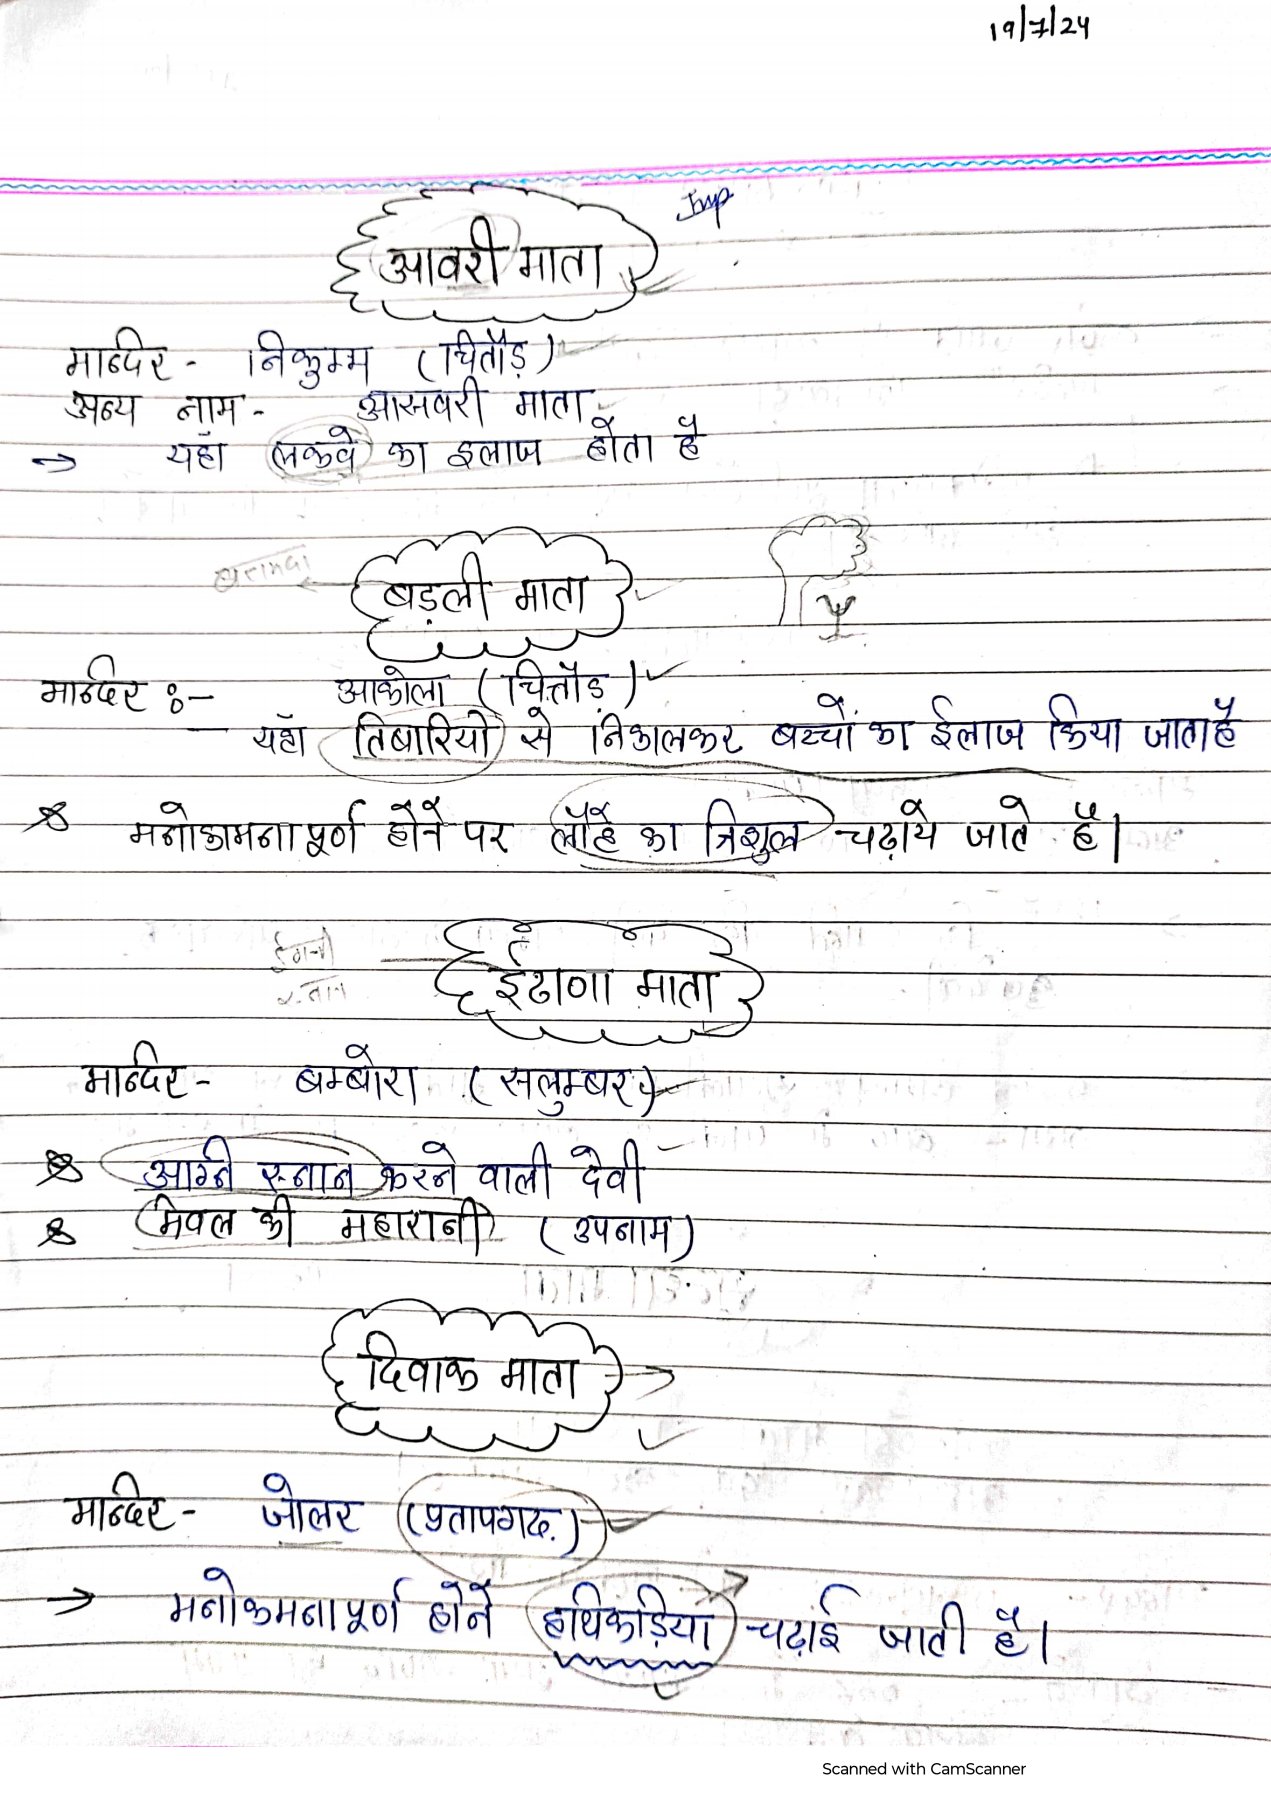 19/7/24
Imp
आवरी माता
मन्दिर - निकुम्म (चितौड़)
अन्य नाम - आसवरी माता
→ यहाँ लकवे का इलाज होता है
बड़ली माता
मन्दिर :- आकोला (चित्तौड़)
- यहाँ तिबारियों से निकालकर बच्चों का ईलाज किया जाता है
मनोकामना पूर्ण होने पर लौहे का त्रिशुल चढ़ाये जाते है।
ईढाणा माता
मन्दिर - बम्बोरा (सलुम्बर)
अग्नि स्नान करने वाली देवी
मेवल की महारानी (उपनाम)
दिवाक माता
मन्दिर - जोलर (प्रतापगढ़)
→ मनोकमना पूर्ण होने हथिकड़िया चढ़ाई जाती है।
Scanned with CamScanner